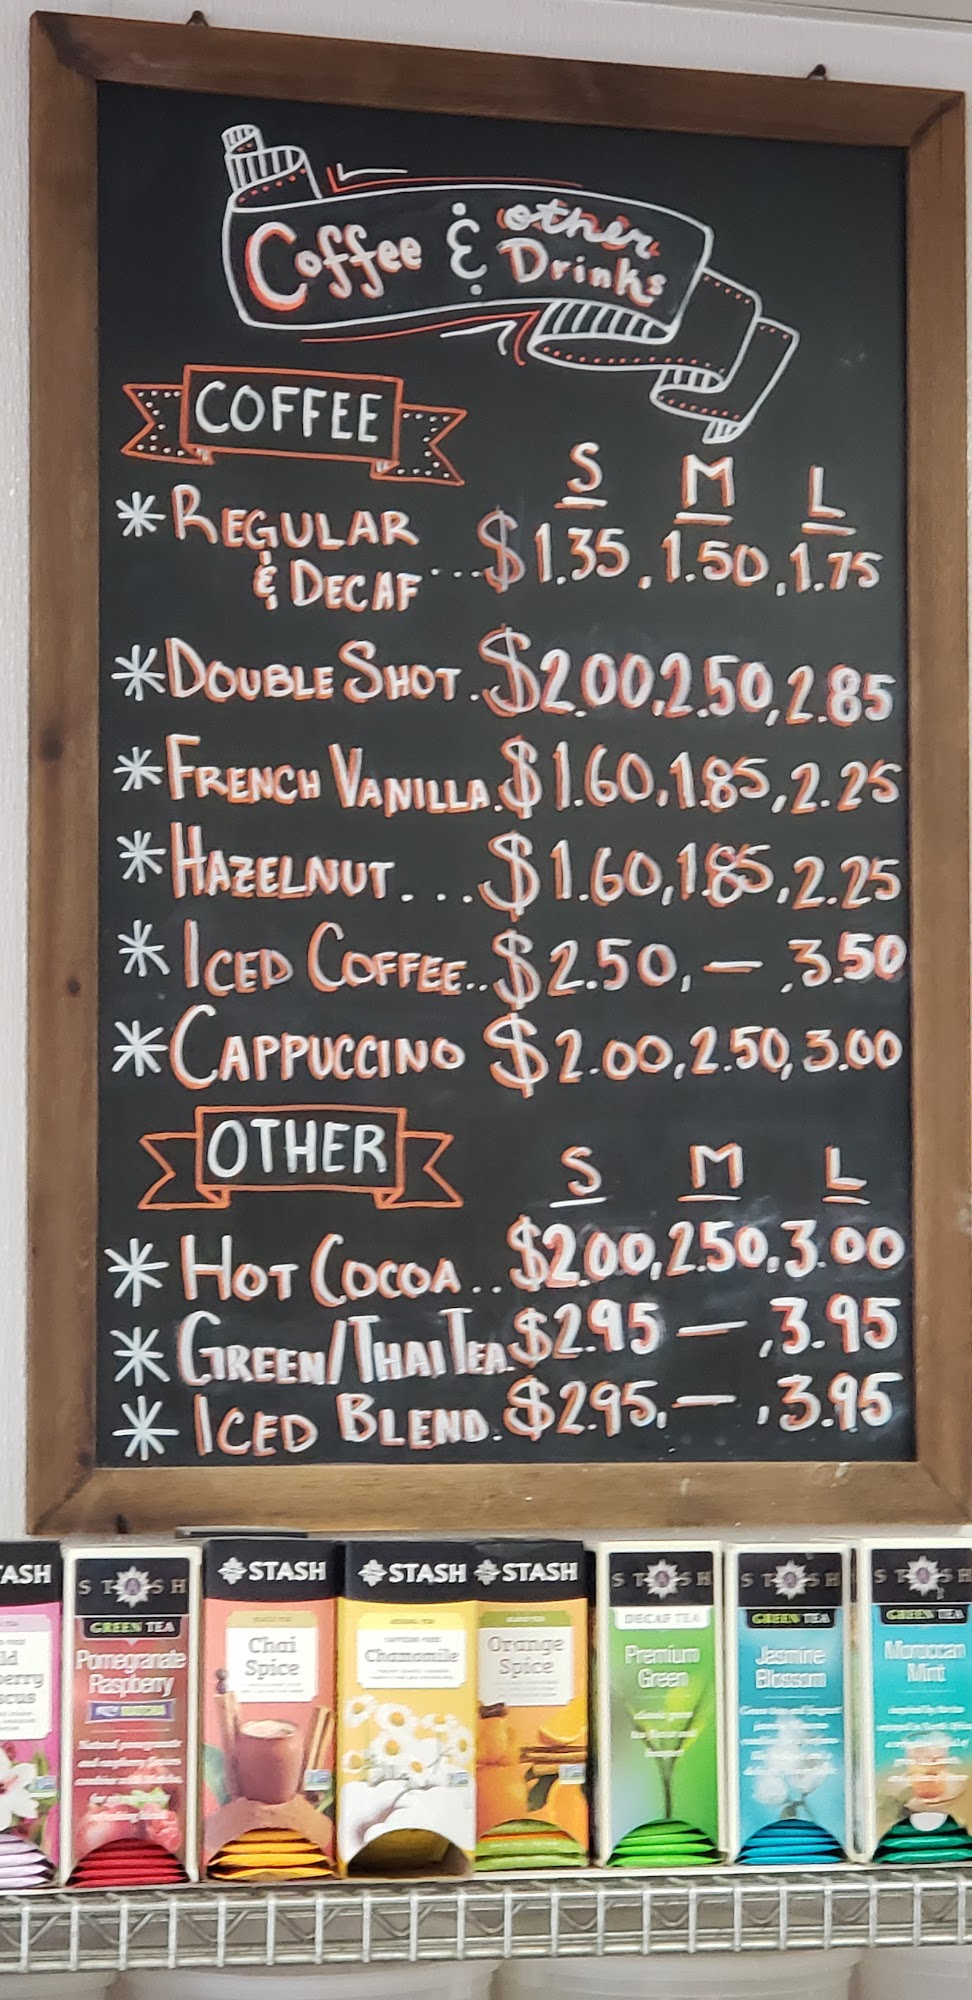 Coffee & other
Drinks
COFFEE
S M L
* REGULAR
& DECAF ...$1.35, 1.50, 1.75
* DOUBLE SHOT. $2.00, 2.50, 2.85
* FRENCH VANILLA. $1.60, 1.85, 2.25
* HAZELNUT... $1.60, 1.85, 2.25
* ICED COFFEE.. $2.50, — , 3.50
* CAPPUCCINO $2.00, 2.50, 3.00
OTHER
S M L
* HOT COCOA.. $2.00, 2.50, 3.00
* GREEN/THAI TEA. $2.95 — , 3.95
* ICED BLEND. $2.95, — , 3.95
STASH
GREEN TEA
Pomegranate
Raspberry
STASH
Chai
Spice
STASH
Chamomile
STASH
Orange
Spice
STASH
DECAF TEA
Premium
Green
STASH
GREEN TEA
Jasmine
Blossom
STASH
GREEN TEA
Moroccan
Mint